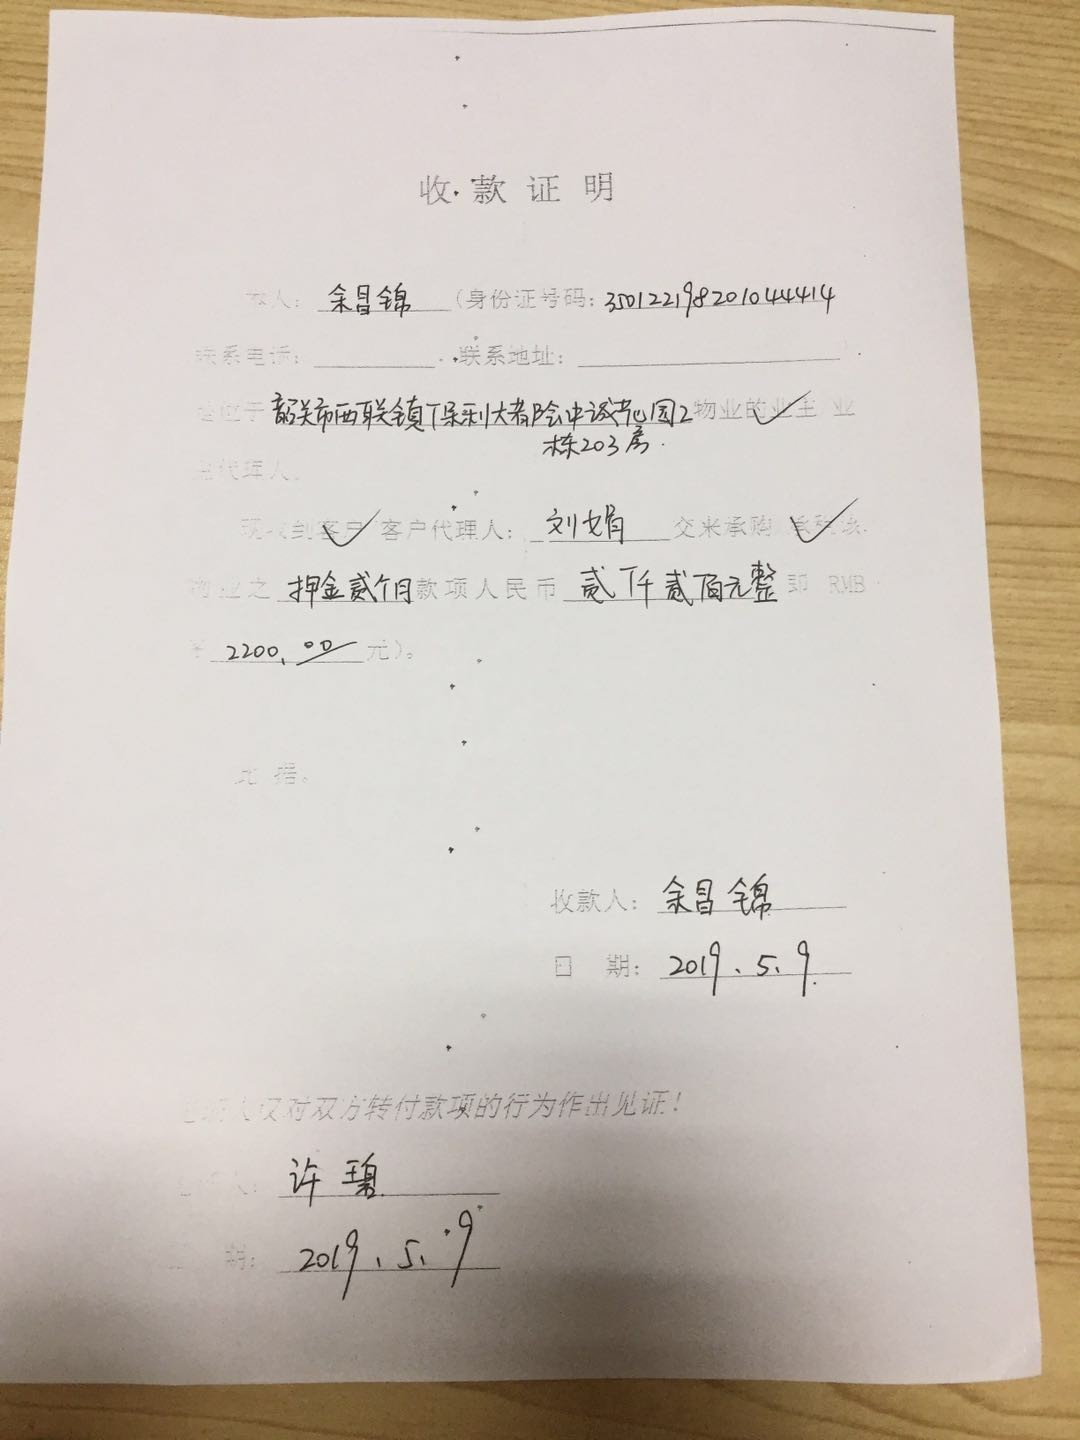 收款证明
本人：余昌锦（身份证号码：350122198201044414
联系电话： 联系地址：
韶关市西联镇保利大都会中诚花园2物业的业主/业
栋203房
代理人。
现收到客户/客户代理人：刘娟 交来承购/承租该
物业之 押金贰个月款项人民币 贰仟贰佰元整 即 RMB
2200.00 元）。
此据。
收款人：余昌锦
日 期：2019.5.9.
人仅对双方转付款项的行为作出见证！
人：许碧
期：2019.5.9